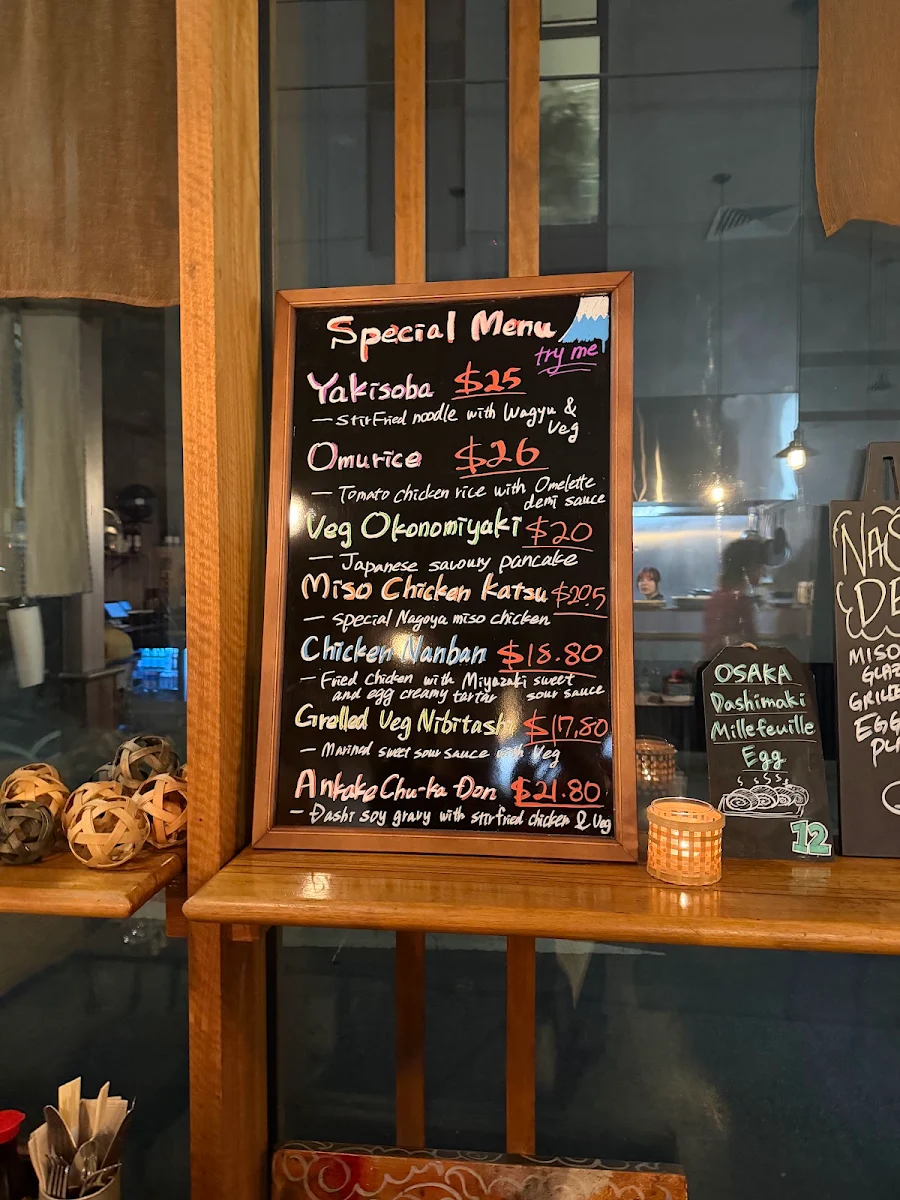 Special Menu
try me
Yakisoba $25
— Stir Fried noodle with Wagyu &
Veg
Omurice $26
— Tomato chicken rice with Omelette
demi sauce
Veg Okonomiyaki $20
— Japanese savoury pancake
Miso Chicken Katsu $20.5
— special Nagoya miso chicken
Chicken Nanban $18.80
— Fried chicken with Miyazaki sweet
and egg creamy tartar sour sauce
Grelled Veg Nibitashi $17.80
— Marined sweet sour sauce with Veg
Ankake Chu-ka Don $21.80
— Dashi soy gravy with stir fried chicken & Veg
OSAKA
Dashimaki
Millefeuille
Egg
12
MISO